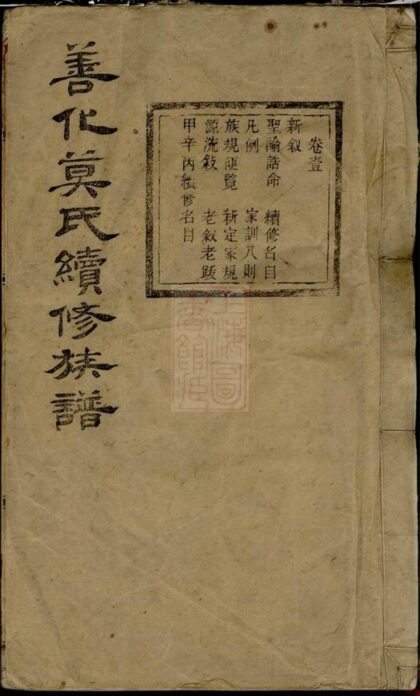 善化莫氏續修族譜
卷壹
新敘
聖諭誥命　續修名目
凡例　家訓八則
族規便覽　新定家規
源流敘　老敘老跋
甲辛丙續修名目